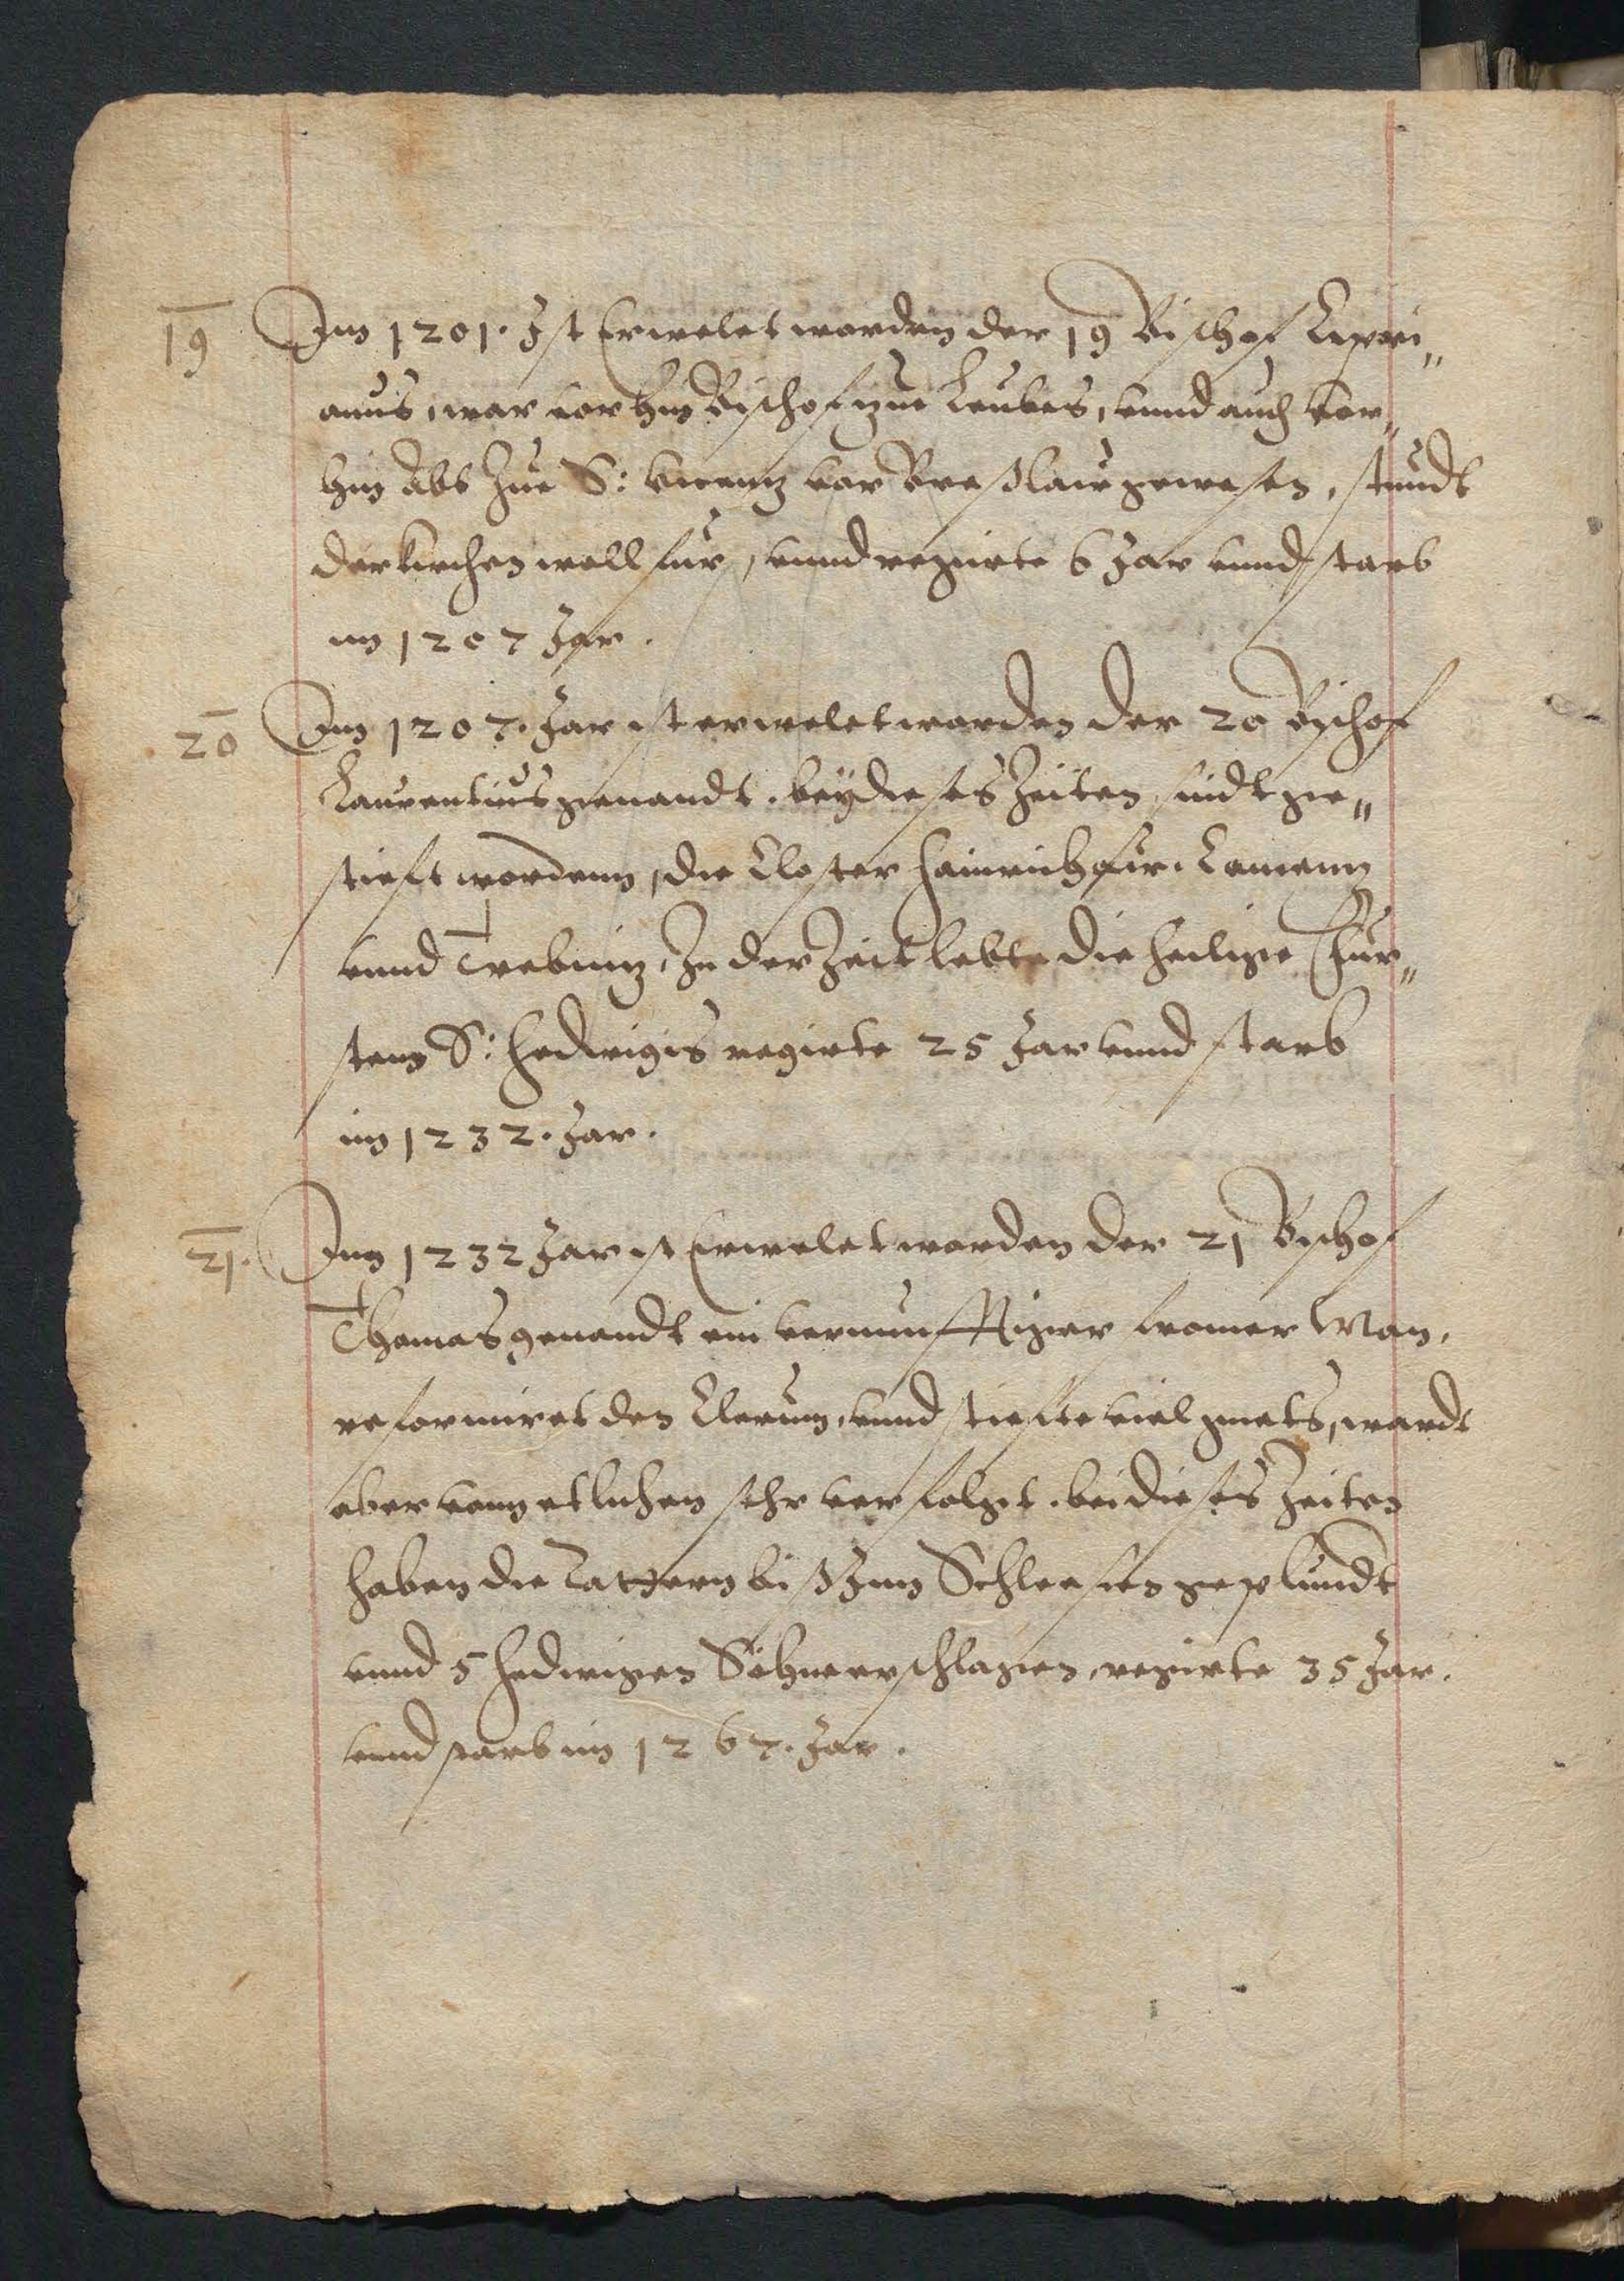 19 Im 1201. Jst Erwelet worden der 19 Bischof Cipri„
anus, war vorhin Bischof zue Leubes, vnnd auch vor„
hin Abt zue S: Vicentz vor Breßlau gewesen, stundt
der kirchen woll fur, vnnd regirte 6 Jar vnnd starb
im 1207 Jar.
20 Im 1207. Jar ist erwelet worden der 20 Bischof
Laurentius genandt. bey dieses Zeiten sindt ge„
stieft wordenn, die Closter Hainrichaw. Camentz
vnnd Trebnitz, In der Zeit lebte die heilige Fur„
stenn S: Hedwigis regirte 25 Jar vnnd starb
im 1232. Jar.
21. Im 1232 Jar ist Erwelet worden der 21 Bischof
Thomas genandt ein vernunfftiger fromer Man,
reformiret den Clerum, vnnd stiefte viel guets, wardt
aber vonn etlichen sehr verfolgt. bei dieses Zeiten
haben die Tattern biß Inn Schlesien geplundt
vnnd S Hedwigen Söhn erschlagen, regirte 35 Jar.
vnnd starb im 1267. Jar.